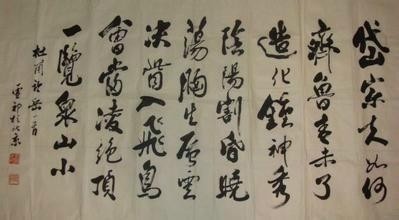 岱宗夫如何
齊魯青未了
造化鍾神秀
陰陽割昏曉
蕩胸生層雲
決眥入飛鳥
會當凌絕頂
一覽衆山小
杜甫望岳一首
於北京